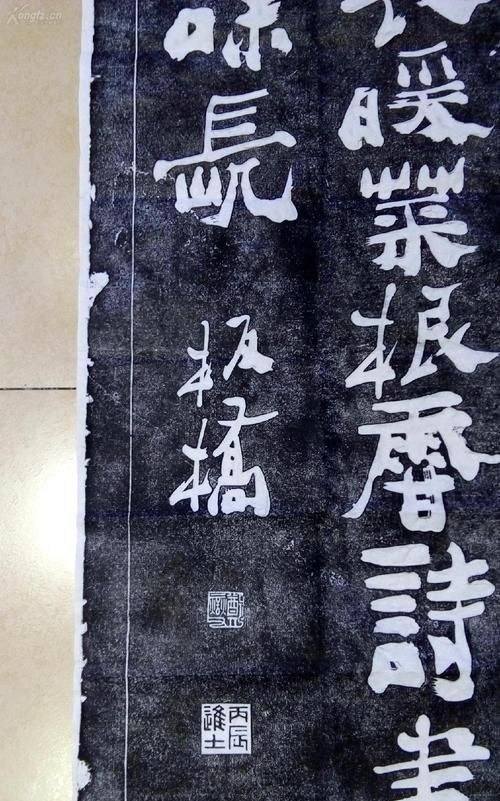 暖菜根香詩書
味長
板橋
丙辰進士
Kongfz.cn